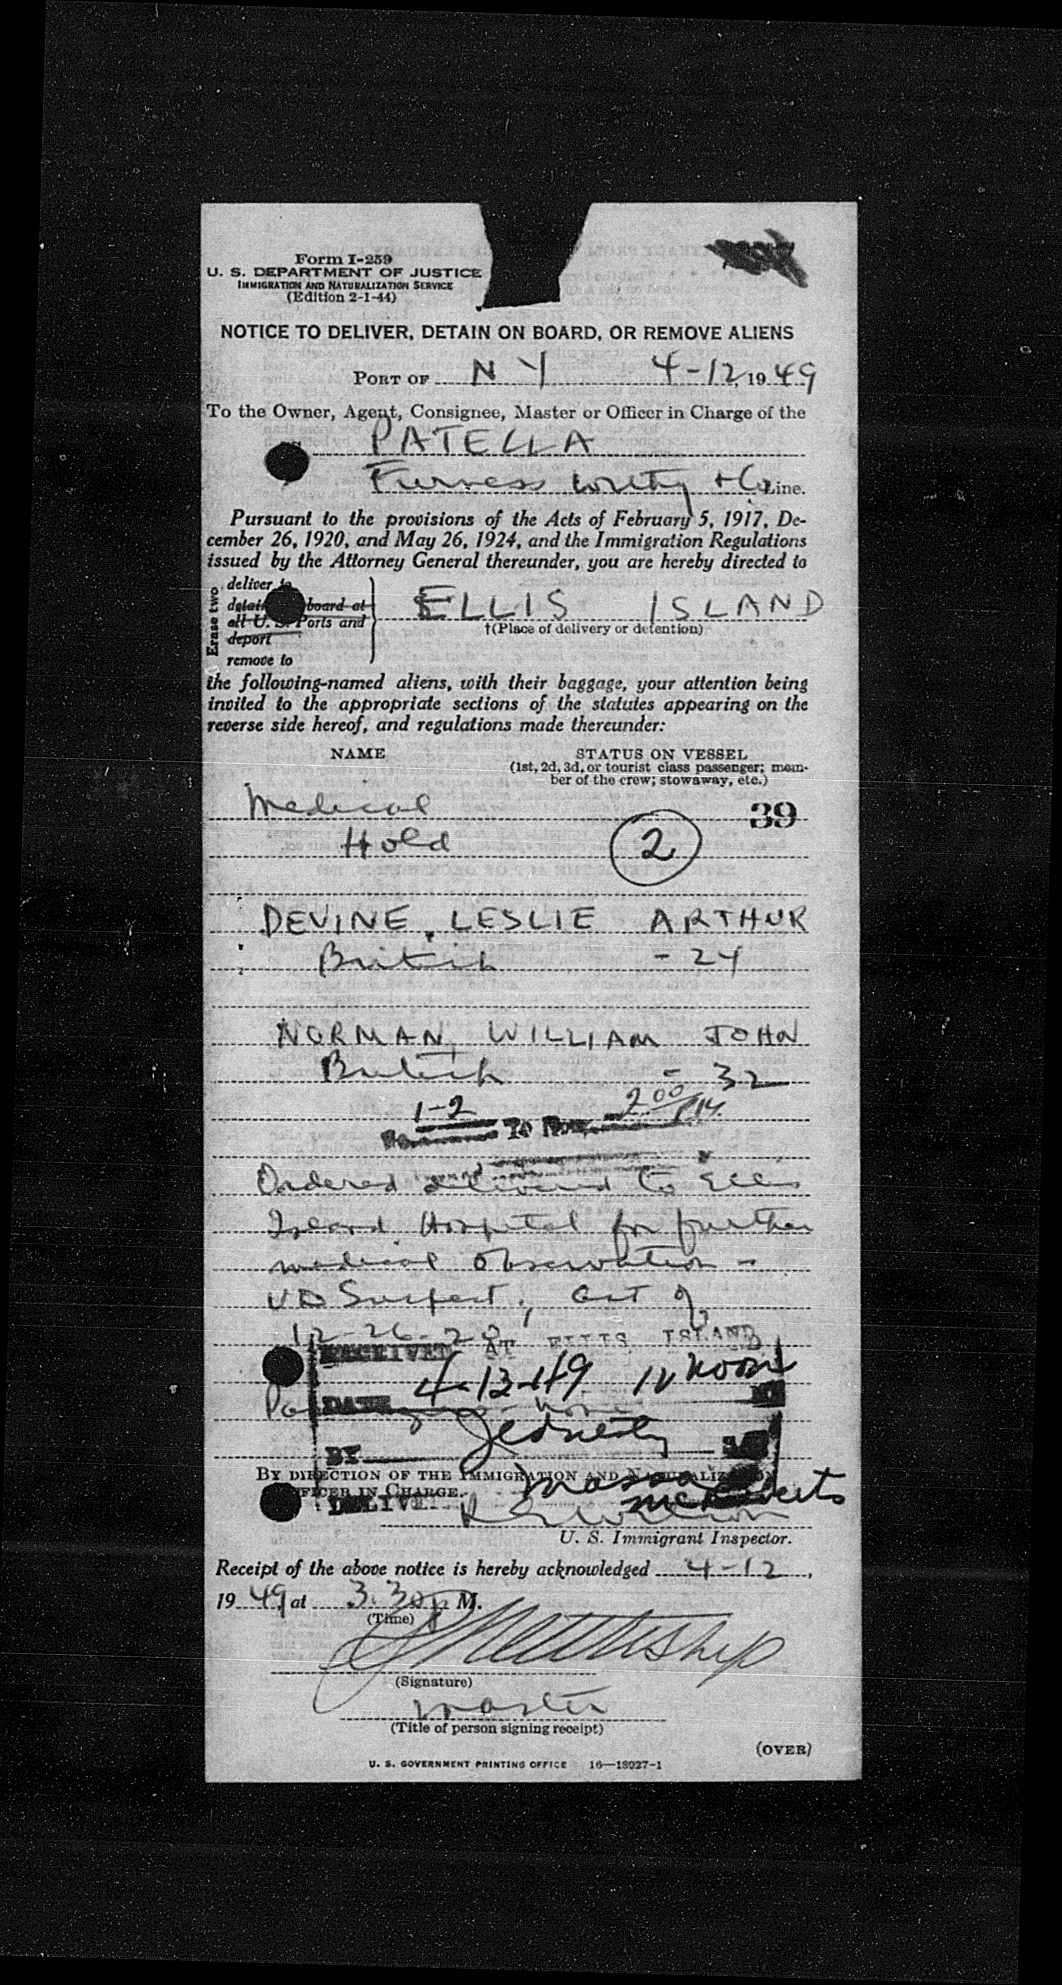 Form I-259
U. S. DEPARTMENT OF JUSTICE
IMMIGRATION AND NATURALIZATION SERVICE
(Edition 2-1-44)
NOTICE TO DELIVER, DETAIN ON BOARD, OR REMOVE ALIENS
PORT OF N Y 4-12, 1949
To the Owner, Agent, Consignee, Master or Officer in Charge of the
PATELLA
Furness Withy + Co Line.
Pursuant to the provisions of the Acts of February 5, 1917, De-
cember 26, 1920, and May 26, 1924, and the Immigration Regulations
issued by the Attorney General thereunder, you are hereby directed to
Erase two
deliver to
board at
all U. S. Ports and
deport
remove to
ELLIS ISLAND
†(Place of delivery or detention)
the following-named aliens, with their baggage, your attention being
invited to the appropriate sections of the statutes appearing on the
reverse side hereof, and regulations made thereunder:
NAME STATUS ON VESSEL
(1st, 2d, 3d, or tourist class passenger; mem-
ber of the crew; stowaway, etc.)
Medical 39
Hold 2
DEVINE, LESLIE ARTHUR
British - 24
NORMAN, WILLIAM JOHN
British - 32
1-2 2 00 PM
TO
Ordered delivered to Ellis
Island Hospital for further
medical observation -
VD Suspect; Act of
12-26-20
RECEIVED AT ELLIS ISLAND
DATE 4-13-49 12 noon
BY
BY DIRECTION OF THE IMMIGRATION AND NATURALIZATION
OFFICER IN CHARGE.
U. S. Immigrant Inspector.
Receipt of the above notice is hereby acknowledged 4-12,
1949, at 3:30 p M.
(Time)
(Signature)
Master
(Title of person signing receipt)
(OVER)
U. S. GOVERNMENT PRINTING OFFICE 16—18027-1